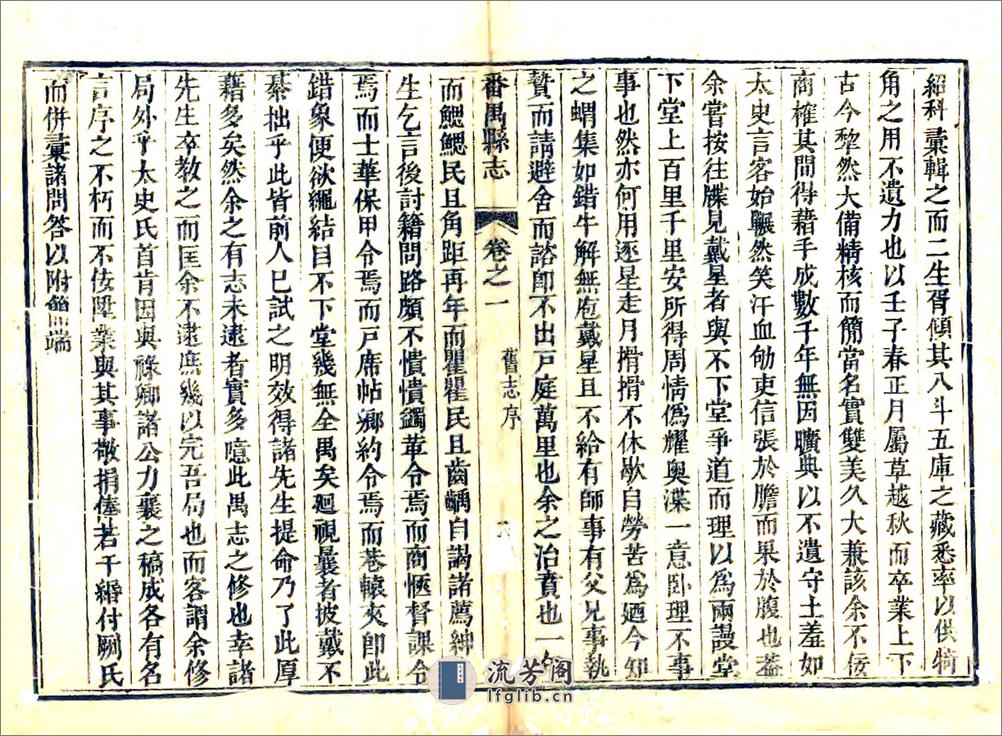 紹科彙輯之而二生胥傾其八斗五庫之藏悉率以供犄
角之用不遺力也以壬子春正月屬草越秋而卒業上下
古今犂然大備精核而簡當名實雙美久大兼該余不佞
商榷其間得藉手成數千年無因曠典以不遺守土羞如
太史言客始囅然笑汗血劬吏信張於膽而果於腹也葢
余嘗按往牒見戴星者與不下堂爭道而理以為兩謾堂
下堂上百里千里安所得周情偽耀奧渫一意卧理不事
事也然亦何用逐星走月搰搰不休歇自勞苦為廼今知
之蝟集如錯牛解無庖戴星且不給有師事有父兄事執
贄而請避舍而諮卽不出戶庭萬里也余之治賁也一
番禺縣志
卷之一
舊志序
一
而鰓鰓民且角距再年而瞿瞿民且齒齲自謁諸薦紳
生乞言後討籍問路頗不憒憒蠲革令焉而商愜督課令
焉而士華保甲令焉而戸席帖鄉約令焉而巷轅夾卽此
錯象便欲繩結目不下堂幾無全禺矣廻視曩者披戴不
綦拙乎此皆前人已試之明效得諸先生提命乃了此厚
藉多矣然余之有志未逮者實多噫此禺志之修也幸諸
先生卒教之而匡余不逮庶幾以完吾局也而客謂余修
局外乎太史氏首肯因與祿卿諸公力襄之稿成各有名
言序之不朽而不佞陞業與其事敬捐俸若干緡付剞氏
而併彙諸問答以附簡端
流芳阁
lfglib.cn